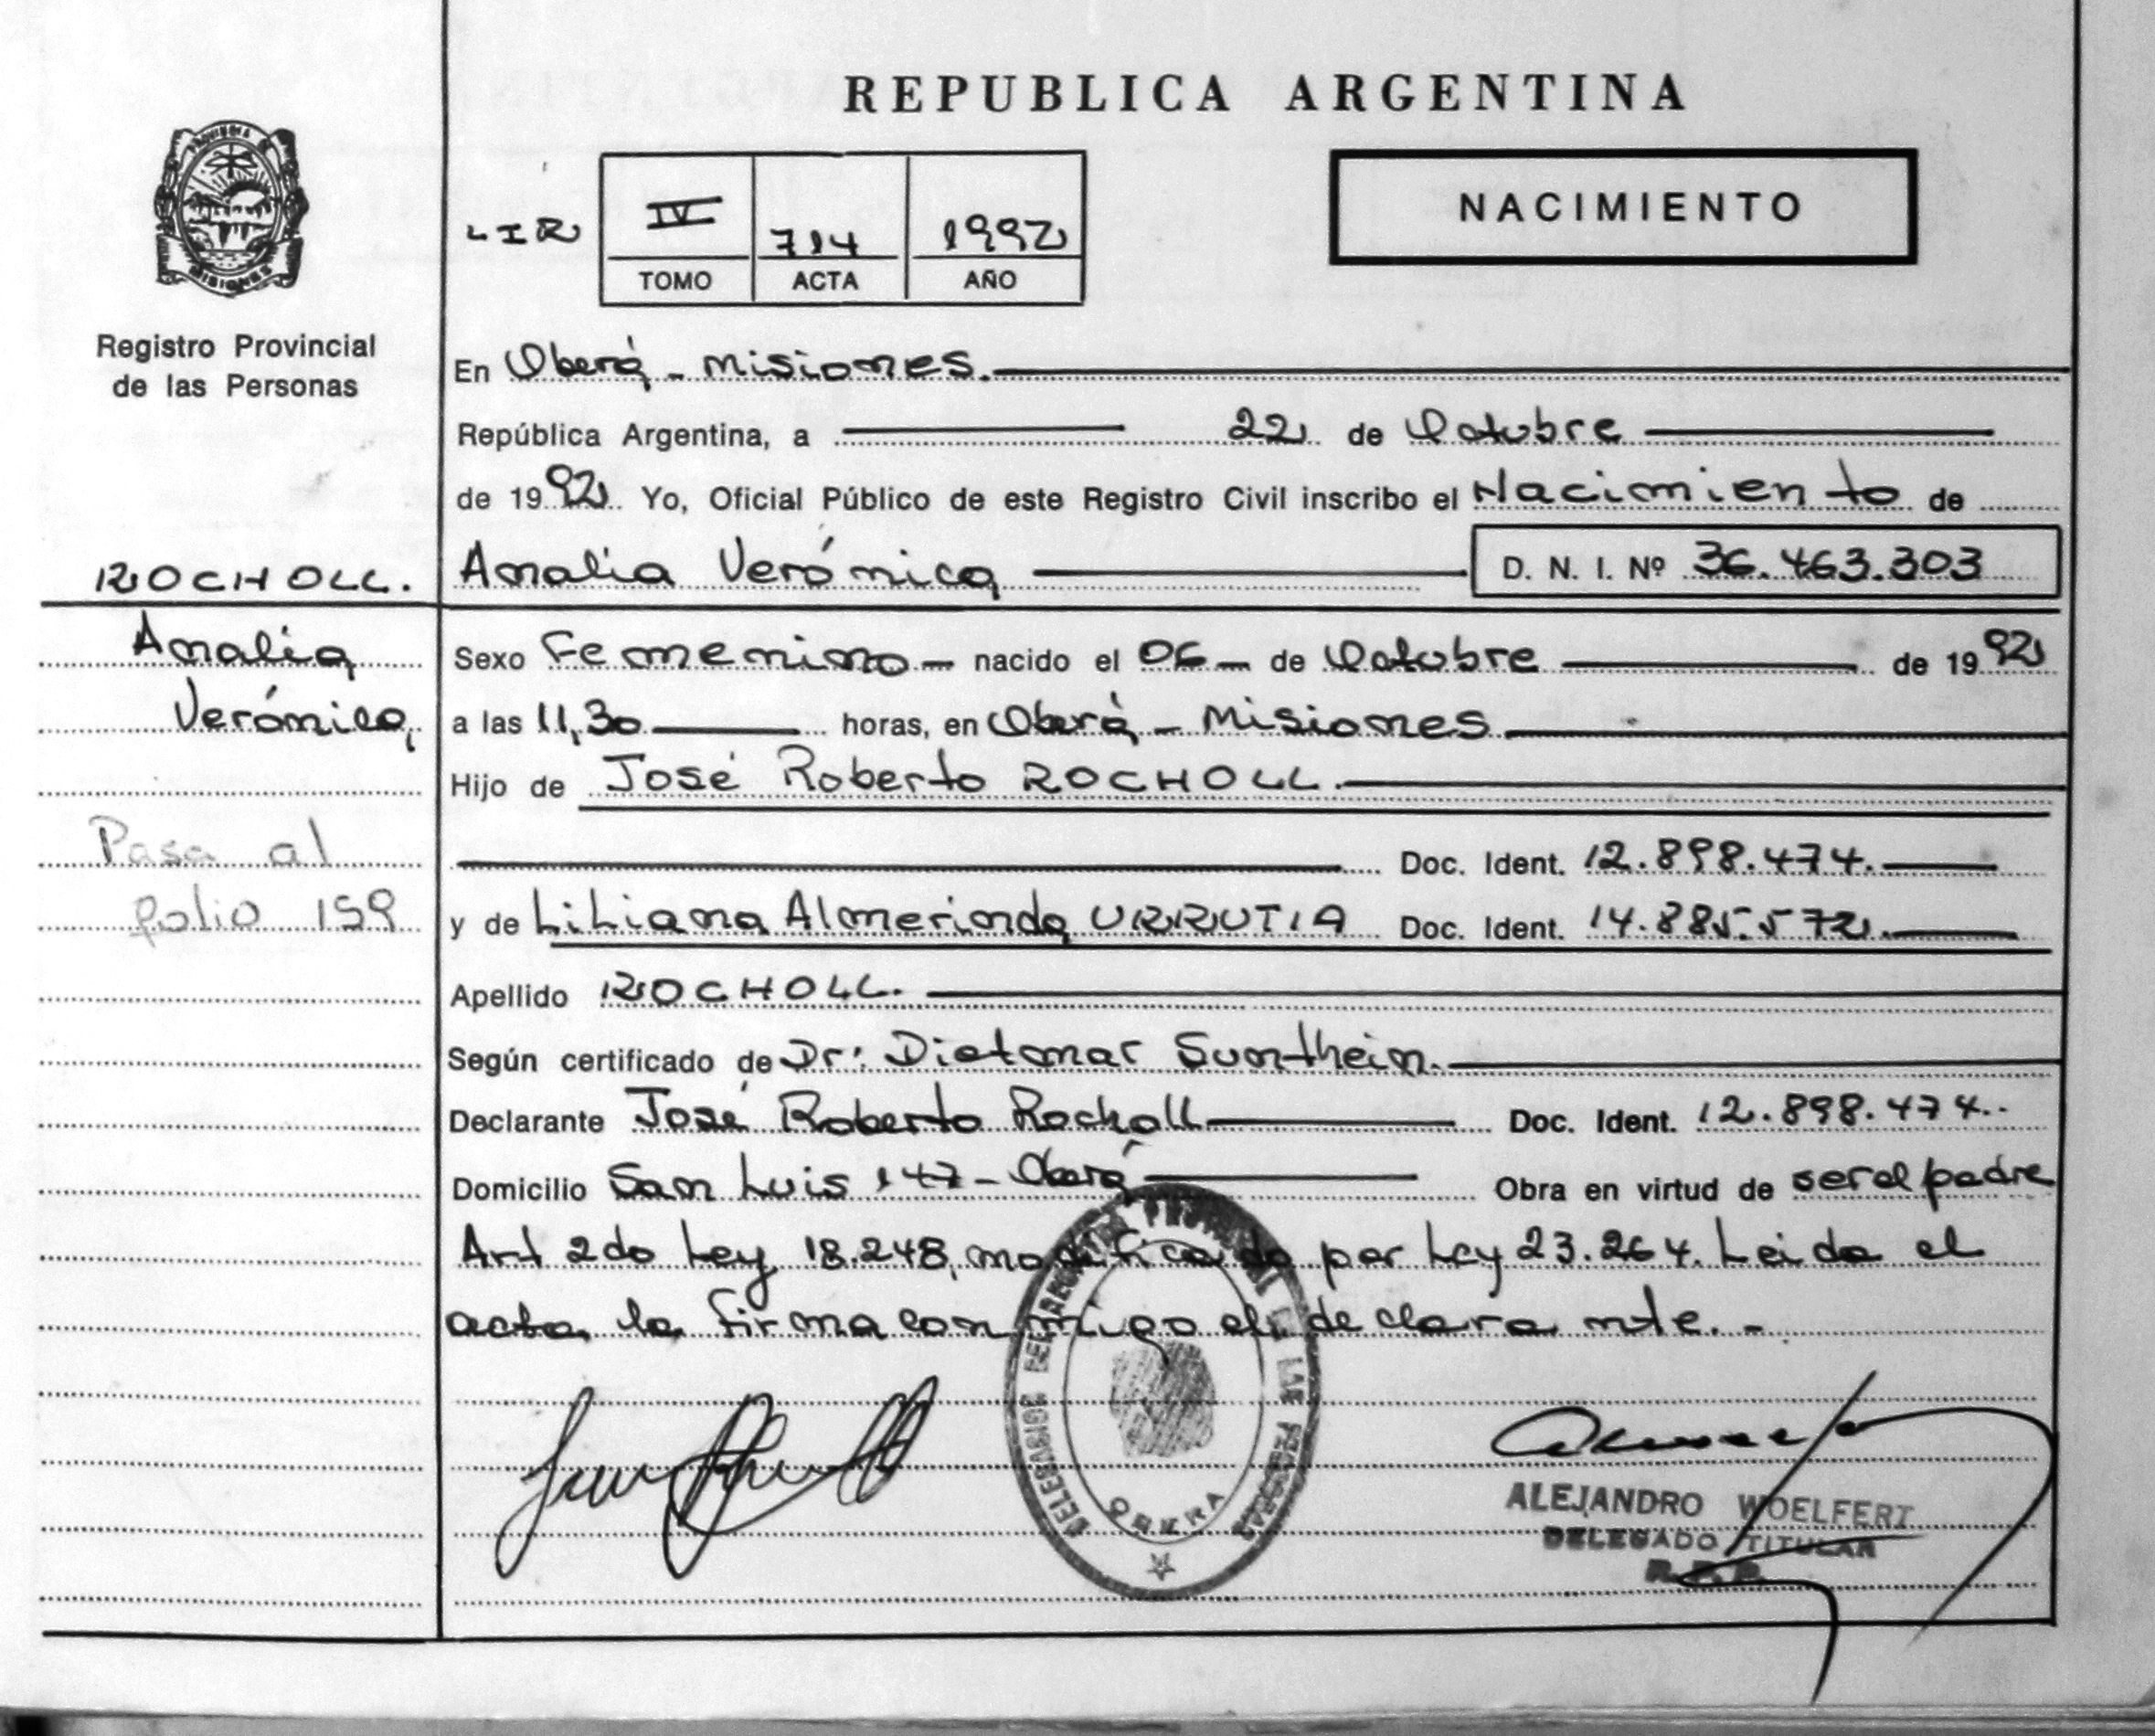 REPUBLICA ARGENTINA
PROVINCIA
MISIONES
Registro Provincial
de las Personas
LIR
IV 714 1992
TOMO ACTA AÑO
NACIMIENTO
En Oberá - Misiones.
República Argentina, a 22 de Octubre
de 1992 Yo, Oficial Público de este Registro Civil inscribo el Nacimiento de
ROCHOLL.
Amalia Verónica D. N. I. Nº 36.463.303
Amalia
Verónica,
Sexo Femenino - nacido el 06 - de Octubre de 1992
a las 11,30 horas, en Oberá - Misiones
Hijo de José Roberto ROCHOLL.
Doc. Ident. 12.898.474.
Pasa al
folio 159
y de Liliana Almerinda URRUTIA Doc. Ident. 14.885.572.
Apellido ROCHOLL.
Según certificado de Dr: Dietmar Sunthein.
Declarante José Roberto Rocholl Doc. Ident. 12.898.474.
Domicilio San Luis 147 - Oberá Obra en virtud de ser el padre
Art 2do Ley 18.248, modificado por Ley 23.264. Leida el
acta, la firma conmigo el declarante. -
OBERA
ALEJANDRO WOELFERT
DELEGADO TITULAR
R. P. P.